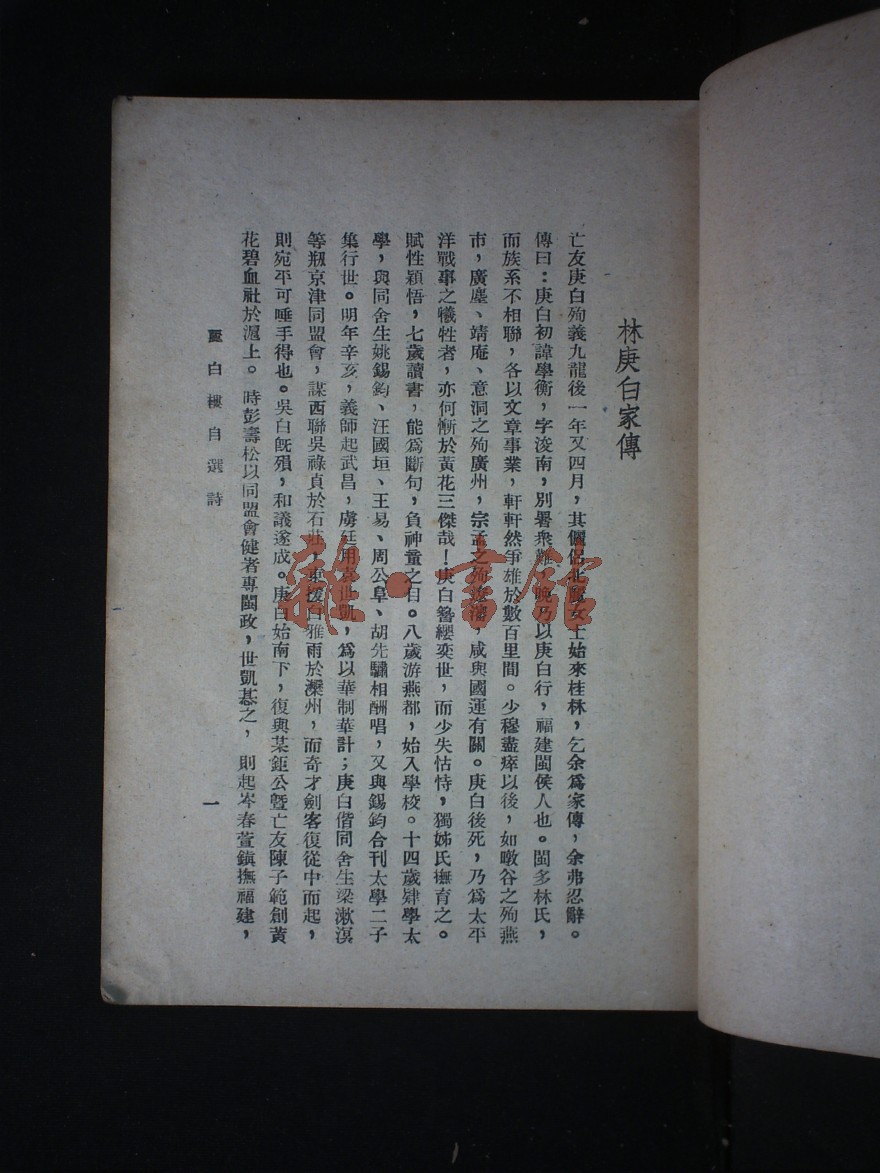 林庚白家傳
亡友庚白殉義九龍後一年又四月，其儷侶北麗女士始來桂林，乞余爲家傳，余弗忍辭。
傳曰：庚白初諱學衡，字浚南，別署衆難，晚乃以庚白行，福建閩侯人也。閩多林氏，
而族系不相聯，各以文章事業，軒軒然爭雄於數百里間。少穆盡瘁以後，如暾谷之殉燕
市，廣塵、靖庵、意洞之殉廣州，宗孟之殉遼瀋，咸與國運有關。庚白後死，乃爲太平
洋戰事之犧牲者，亦何慚於黃花三傑哉！庚白簪纓奕世，而少失怙恃，獨姊氏撫育之。
賦性穎悟，七歲讀書，能爲斷句，負神童之目。八歲游燕都，始入學校。十四歲肄學太
學，與同舍生姚錫鈞、汪國垣、王易、周公阜、胡先驌相酬唱，又與錫鈞合刊太學二子
集行世。明年辛亥，義師起武昌，虜廷用袁世凱，爲以華制華計；庚白偕同舍生梁漱溟
等剏京津同盟會，謀西聯吳祿貞於石莊，東援白雅雨於灤州，而奇才劍客復從中而起，
則宛平可唾手得也。吳白旣殞，和議遂成。庚白始南下，復與某鉅公曁亡友陳子範創黃
花碧血社於滬上。時彭壽松以同盟會健者專閩政，世凱惎之，則起岑春萱鎮撫福建，
麗白樓自選詩
一
雜·書館